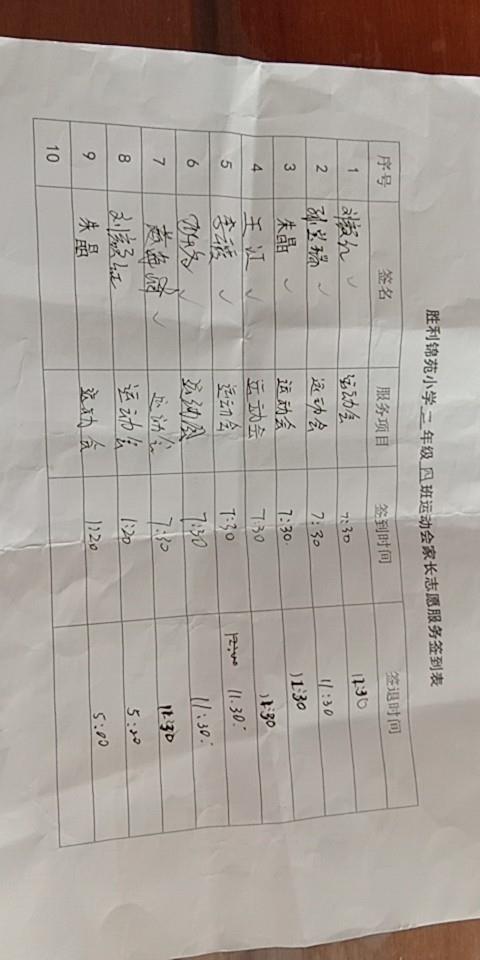 胜利锦苑小学二年级四班运动会家长志愿服务签到表
序号 签名 服务项目 签到时间 签退时间
1 运动会 7:30 11:30
2 运动会 7:30 11:30
3 朱晶 ✓ 运动会 7:30. 11:30
4 王江 ✓ 运动会 7:30 11:30
5 李 ✓ 运动会 7:30 11:30.
6 运动会 7:30 11:30.
7 赵海 ✓ 运动会 7:30 11:30
8 刘颖红 运动会 1:20 5:00
9 朱晶 运动会 1:20 5:00
10